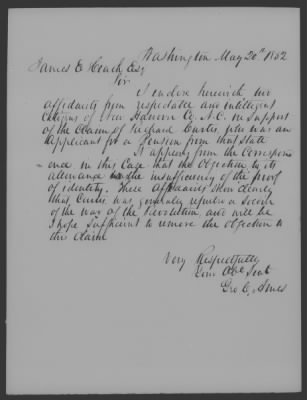 Washington May 20th 1852
James E Heath Esq
Sir
I enclose herewith two
affidavits from respectable and intelligent
citizens of New Hanover Co. N.C. in support
of the Claim of Richard Curtis, who was an
applicant for a Pension from that State
It appears from the Correspond
-ence in this Case that the Objection to its
allowance was the insufficiency of the proof
of identity. These affidavits show clearly
that Curtis was generally reputed a Soldier
of the War of the Revolution and will be
I hope sufficient to remove the Objection to
this Claim
Very Respectfully
Your Obt Servt
Geo C. Ames